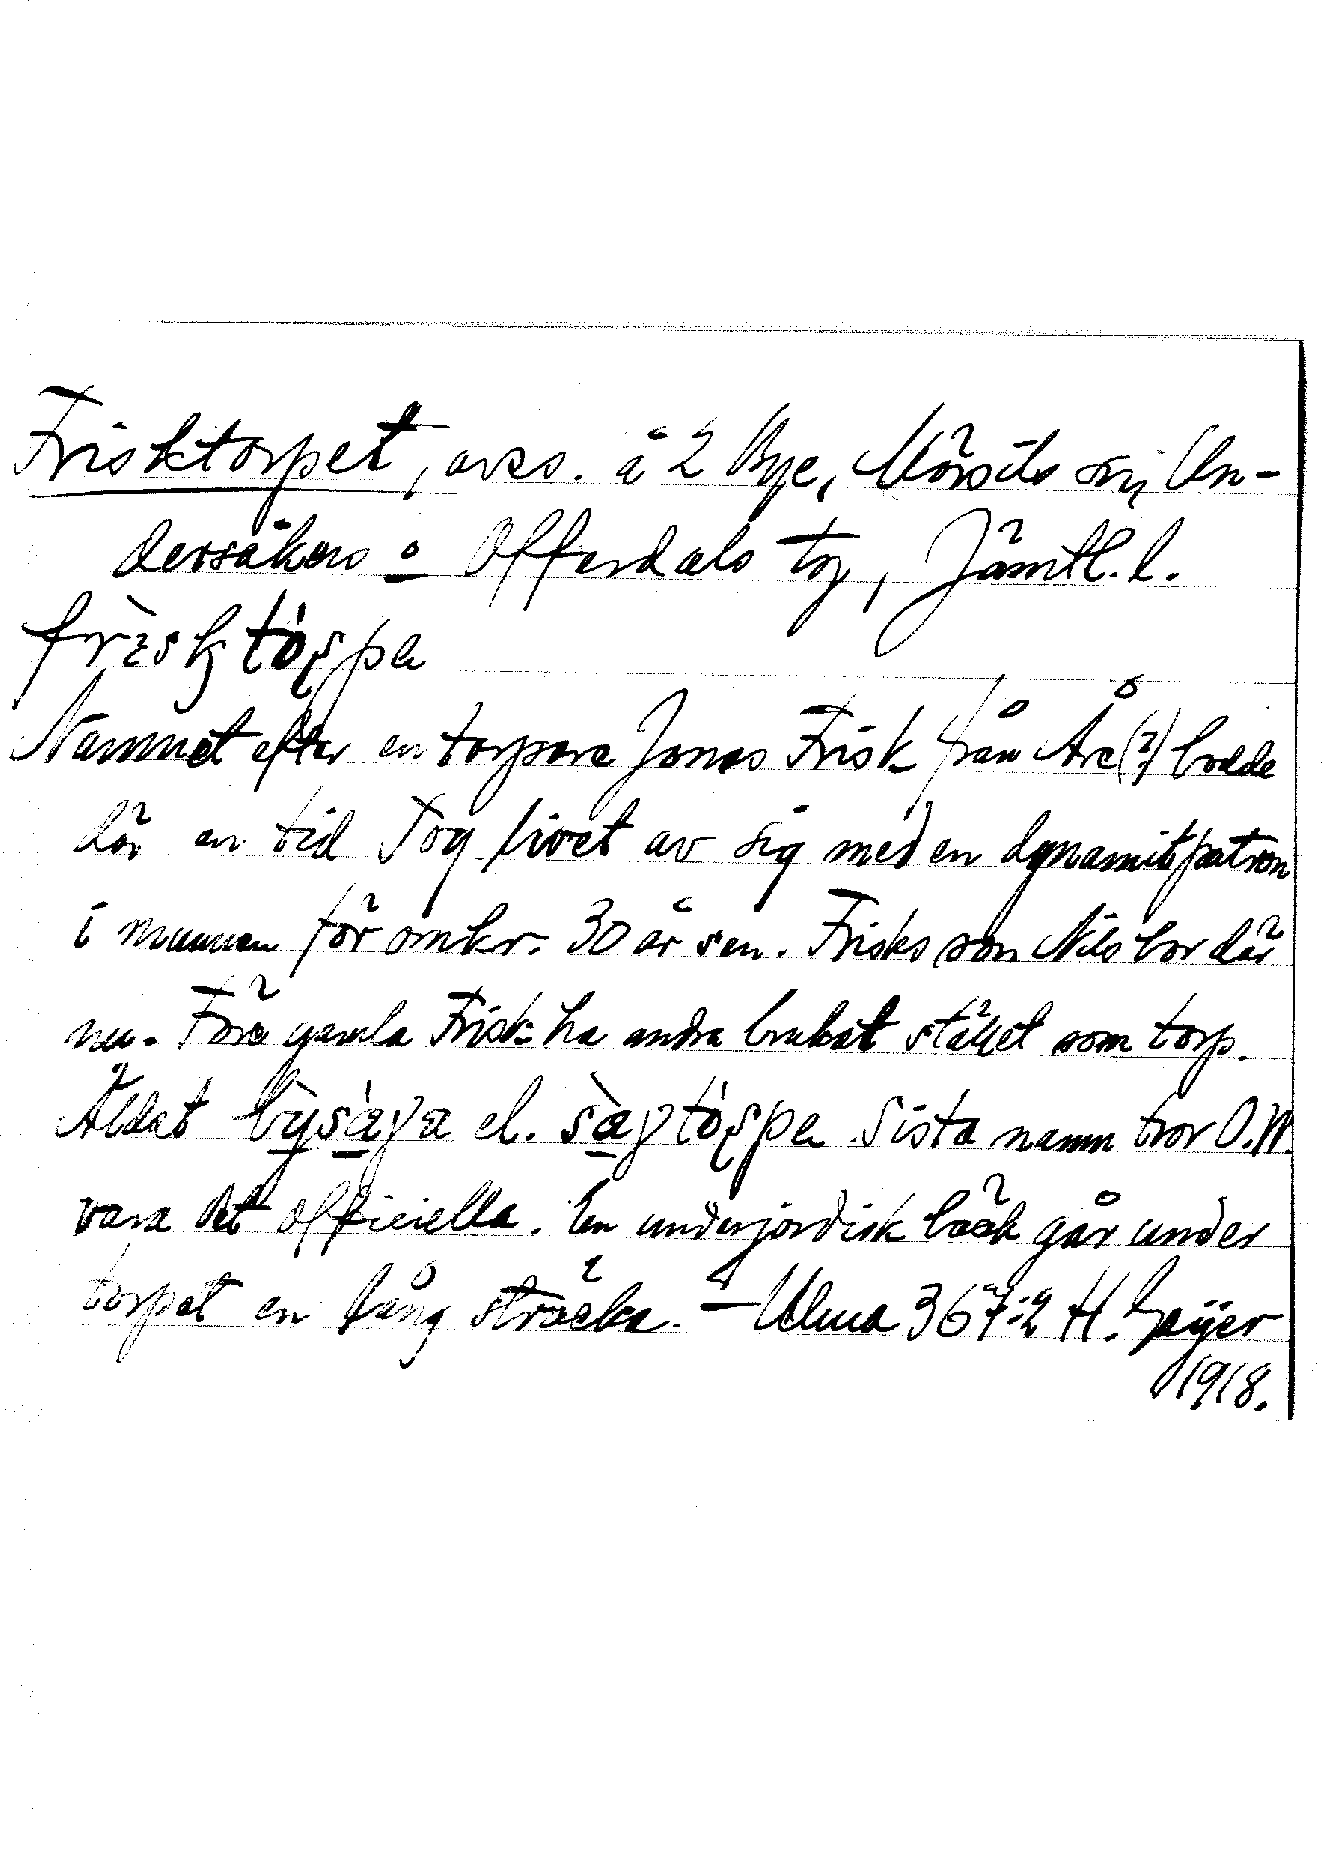 Frisktorpet, avs. å 2 Bye, Mörsils sn, Un-
dersåkers o Offerdals tg, Jämtl. l.
Namnet efter en torpare Jonas Frisk från Åre(?) bodde
där en tid Tog livet av sig med en dynamitpatron
i munnen för omkr. 30 år sen. Frisks son Nils bor där
nu. Före gamla Frisk ha andra brukat stället som torp.
Äldst bỳsàga el. Sista namn tror O.W.
vara det officiella. En underjordisk bäck går under
torpet en lång sträcka. – Ulma 367:2 H. Geijer
1918.